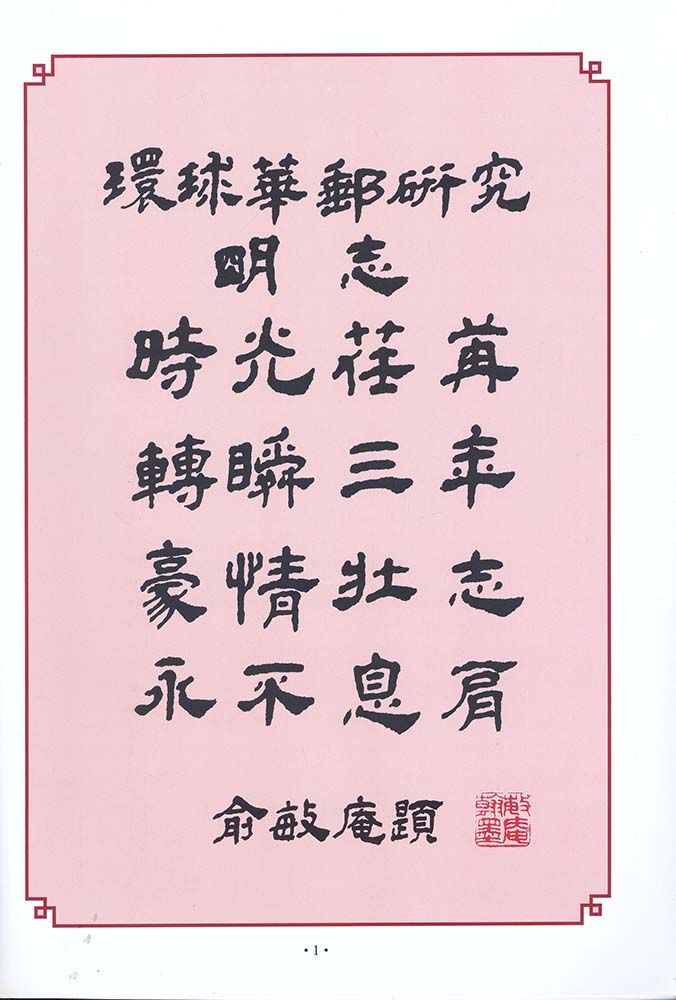 環球華郵研究
明志
時光荏苒
轉瞬三年
豪情壯志
永不息肩
俞敏庵題
敏庵翰墨
• 1 •